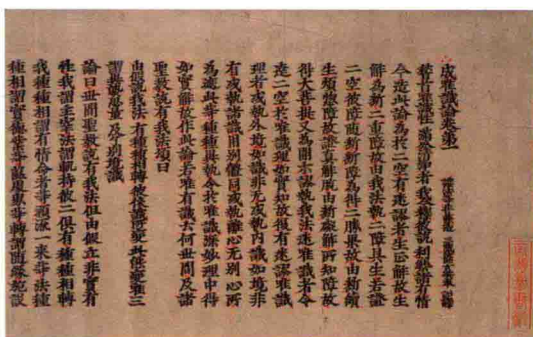 成唯識論卷第一 護法等菩薩造 三藏法師玄奘奉 詔譯
稽首唯識性 滿分清淨者 我今釋彼說 利樂諸有情
今造此論為於二空有迷謬者生正解故生
解為斷二重障故由我法執二障具生若證
二空彼障隨斷斷障為得二勝果故由斷續
生煩惱障故證真解脫由斷礙解所知障故
得大菩提又為開示謬執我法迷唯識者令
達二空於唯識理如實知故復有迷謬唯識
理者或執外境如識非无或執內識如境非
有或執諸識用別體同或執離心无別心所
為遮此等種種異執令於唯識深妙理中得
如實解故作此論若唯有識云何世間及諸
聖教說有我法頌曰
由假說我法 有種種相轉 彼依識所變 此能變唯三
謂異熟思量 及了別境識
論曰世間聖教說有我法但由假立非實有
性我謂主宰法謂軌持彼二俱有種種相轉
我種種相謂有情命者等預流一來等法種
種相謂實德業等蘊處界等轉謂隨緣施設